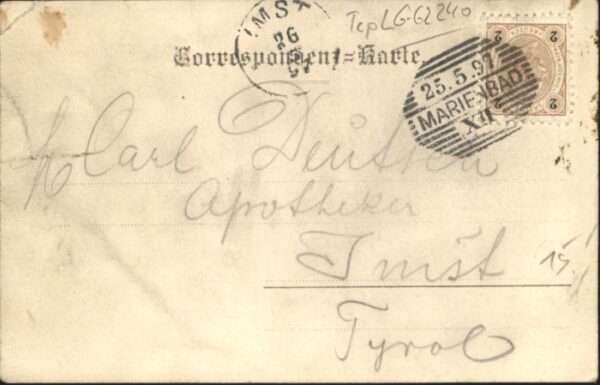 IMST
26
TepLG-G2240
2 2
Correspondenz=Karte.
25.5.97
MARIENBAD
XII
2 2
Carl Deutsch
Apotheker
Imst
Tyrol